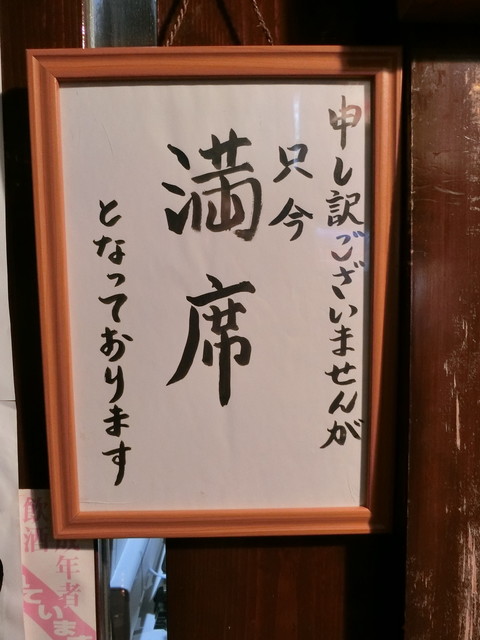 申し訳ございませんが
只今
満席
となっております
年者
飲酒
ています